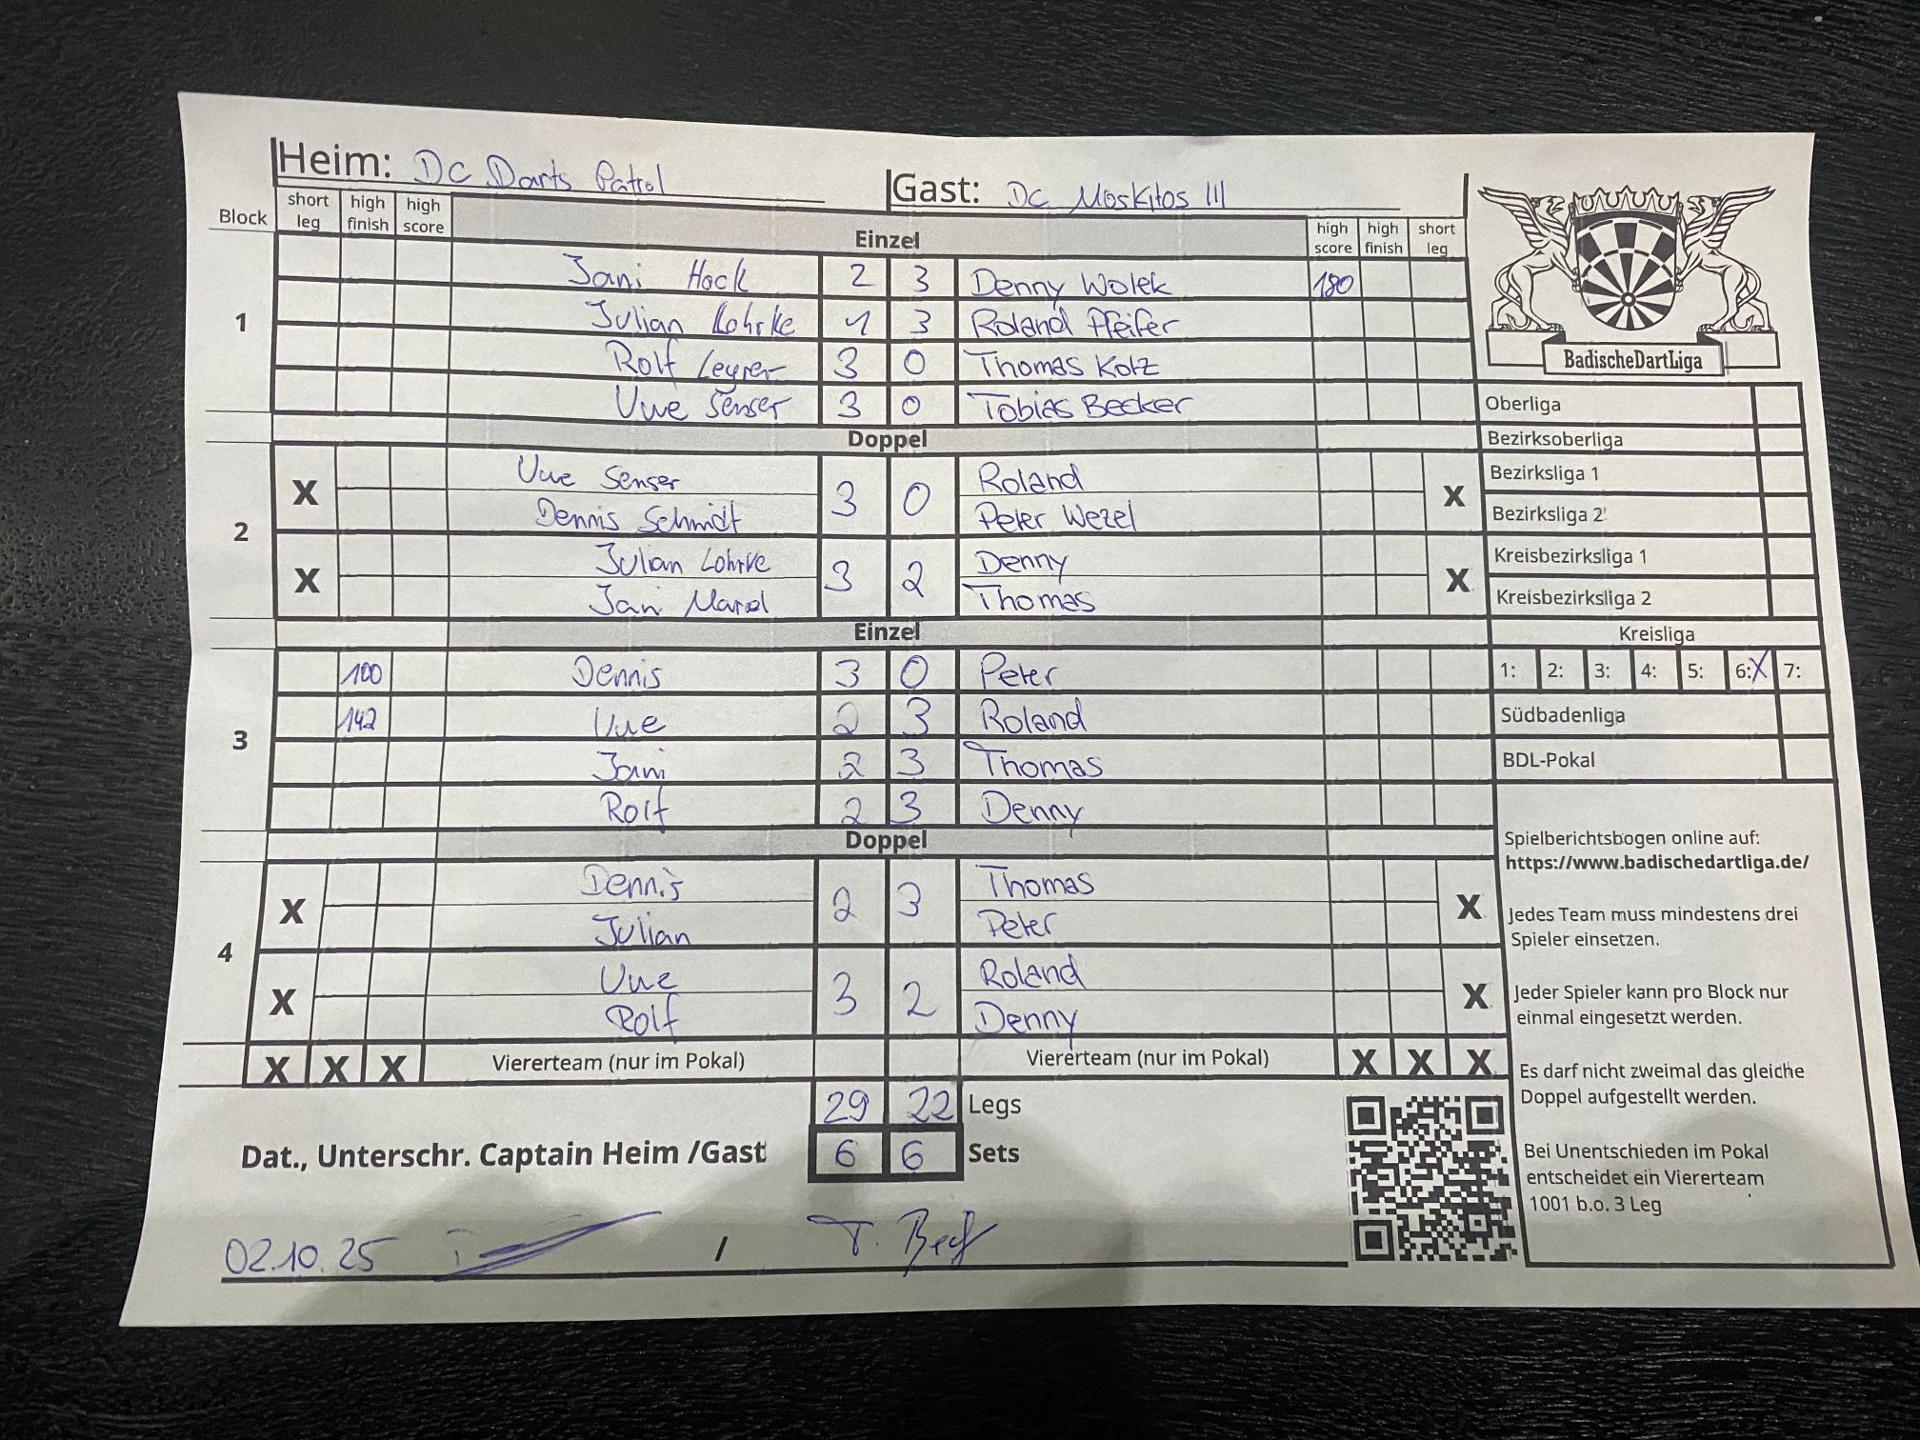 Heim: DC Darts Patrol Gast: DC Moskitos III
Block short leg high finish high score Einzel high score high finish short leg
1
Jani Hock 2 3 Denny Wolek 180
Julian Lohrke 1 3 Roland Pfeifer
Rolf Leyrer 3 0 Thomas Kotz
Uwe Senser 3 0 Tobias Becker
Doppel
2
X Uwe Senser 3 0 Roland X
Dennis Schmidt Peter Wezel
X Julian Lohrke 3 2 Denny X
Jani Thomas
Einzel
3
100 Dennis 3 0 Peter
142 Uwe 2 3 Roland
Jani 2 3 Thomas
Rolf 2 3 Denny
Doppel
4
X Dennis 2 3 Thomas X
Julian Peter
X Uwe 3 2 Roland X
Rolf Denny
X X X Viererteam (nur im Pokal) Viererteam (nur im Pokal) X X X
29 22 Legs
Dat., Unterschr. Captain Heim /Gast 6 6 Sets
02.10.25 / T.
BadischeDartLiga
Oberliga
Bezirksoberliga
Bezirksliga 1
Bezirksliga 2
Kreisbezirksliga 1
Kreisbezirksliga 2
Kreisliga
1: 2: 3: 4: 5: 6:X 7:
Südbadenliga
BDL-Pokal
Spielberichtsbogen online auf:
https://www.badischedartliga.de/
Jedes Team muss mindestens drei
Spieler einsetzen.
Jeder Spieler kann pro Block nur
einmal eingesetzt werden.
Es darf nicht zweimal das gleiche
Doppel aufgestellt werden.
Bei Unentschieden im Pokal
entscheidet ein Viererteam
1001 b.o. 3 Leg